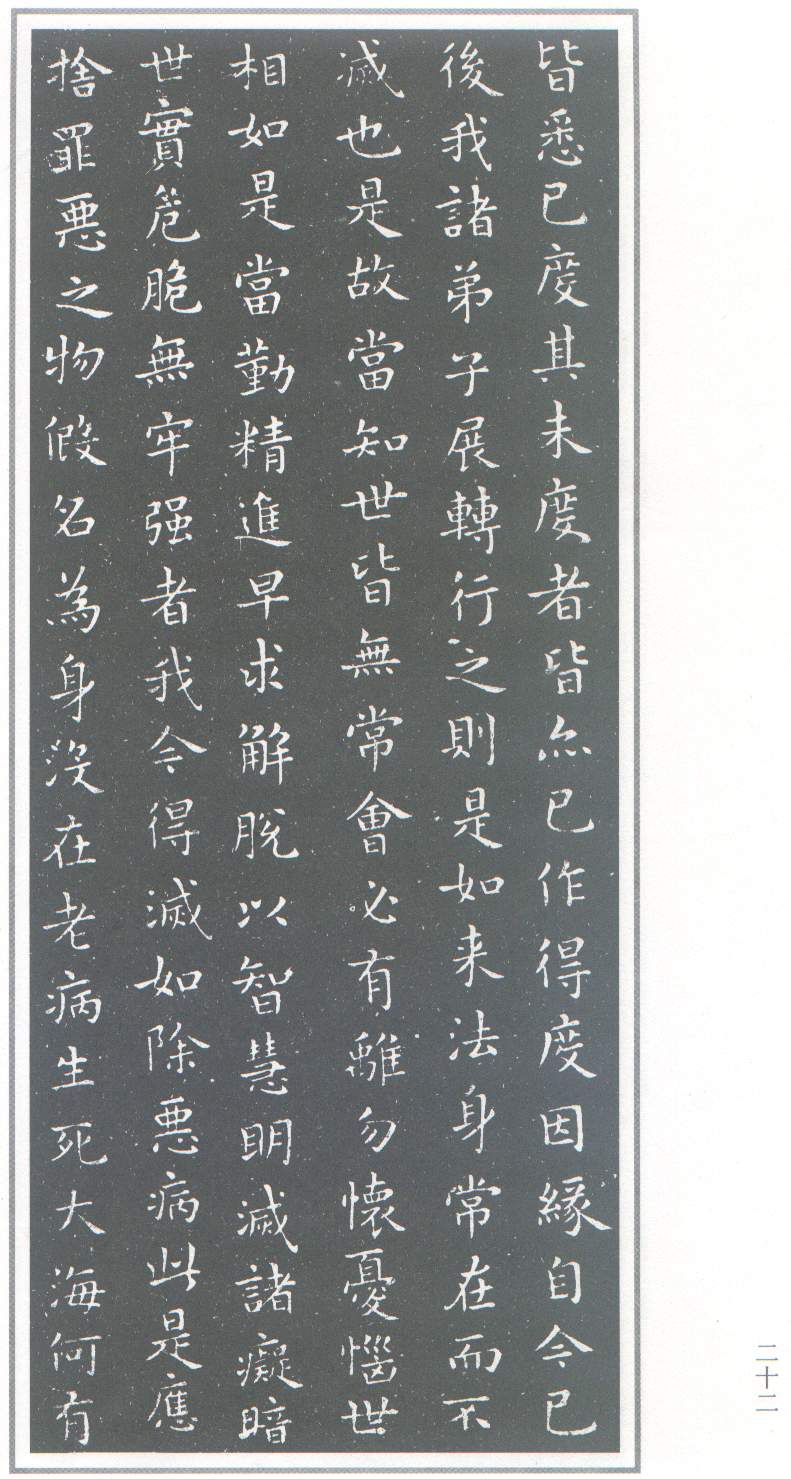 皆悉已度其未度者皆亦已作得度因緣自今已
後我諸弟子展轉行之則是如来法身常在而不
滅也是故當知世皆無常會必有離勿懷憂惱世
相如是當勤精進早求解脫以智慧明滅諸癡暗
世實危脆無牢强者我今得滅如除惡病此是應
捨罪惡之物假名為身沒在老病生死大海何有
二十二